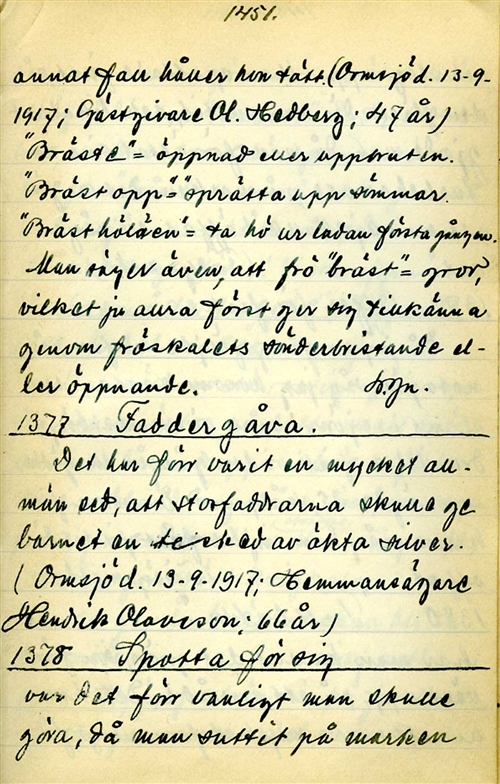 1451.
annat fall håller hon tätt. (Ormsjö d. 13-9-
1917; Gästgivare Ol. Hedberg; 47 år)
"Bräste" = öppnad eller uppbruten.
"Bräst opp" = "sprätta upp sömmar.
"Bräst höläen" = ta hö ur ladan första gången.
Man säger även, att frö "bräst" = gror,
vilket ju allra först ger sig tillkänna
genom fröskalets sönderbristande el-
ler öppnande.
1377 Faddergåva.
Det har förr varit en mycket all-
män sed, att storfaddrarna skulle ge
barnet en tesked av äkta silver.
(Ormsjö d. 13-9-1917; Hemmansägare
Hendrik Olovsson; 66 år)
1378 Spotta för sig
var det förr vanligt man skulle
göra, då man suttit på marken